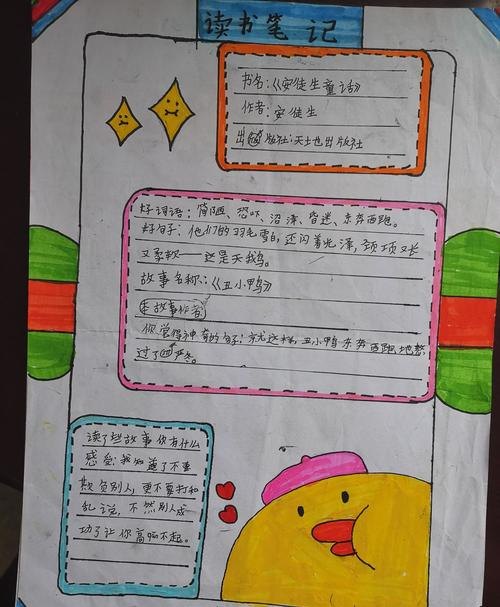 读书笔记
书名:《安徒生童话》
作者:安徒生
出版社:天地出版社
好词语:简陋、恐吓、沼泽、昏迷、东奔西跑。
好句子:他们的羽毛雪白,还闪着光泽,颈项又长
又柔软——这是天鹅。
故事名称:《丑小鸭》
故事作者
你觉得神奇的句子:就这样,丑小鸭东奔西跑地熬
过了严冬。
读了些故事你有什么
感受:我知道了不要
欺负别人,更不要打和
乱说,不然别人成
功了让你高
不起。